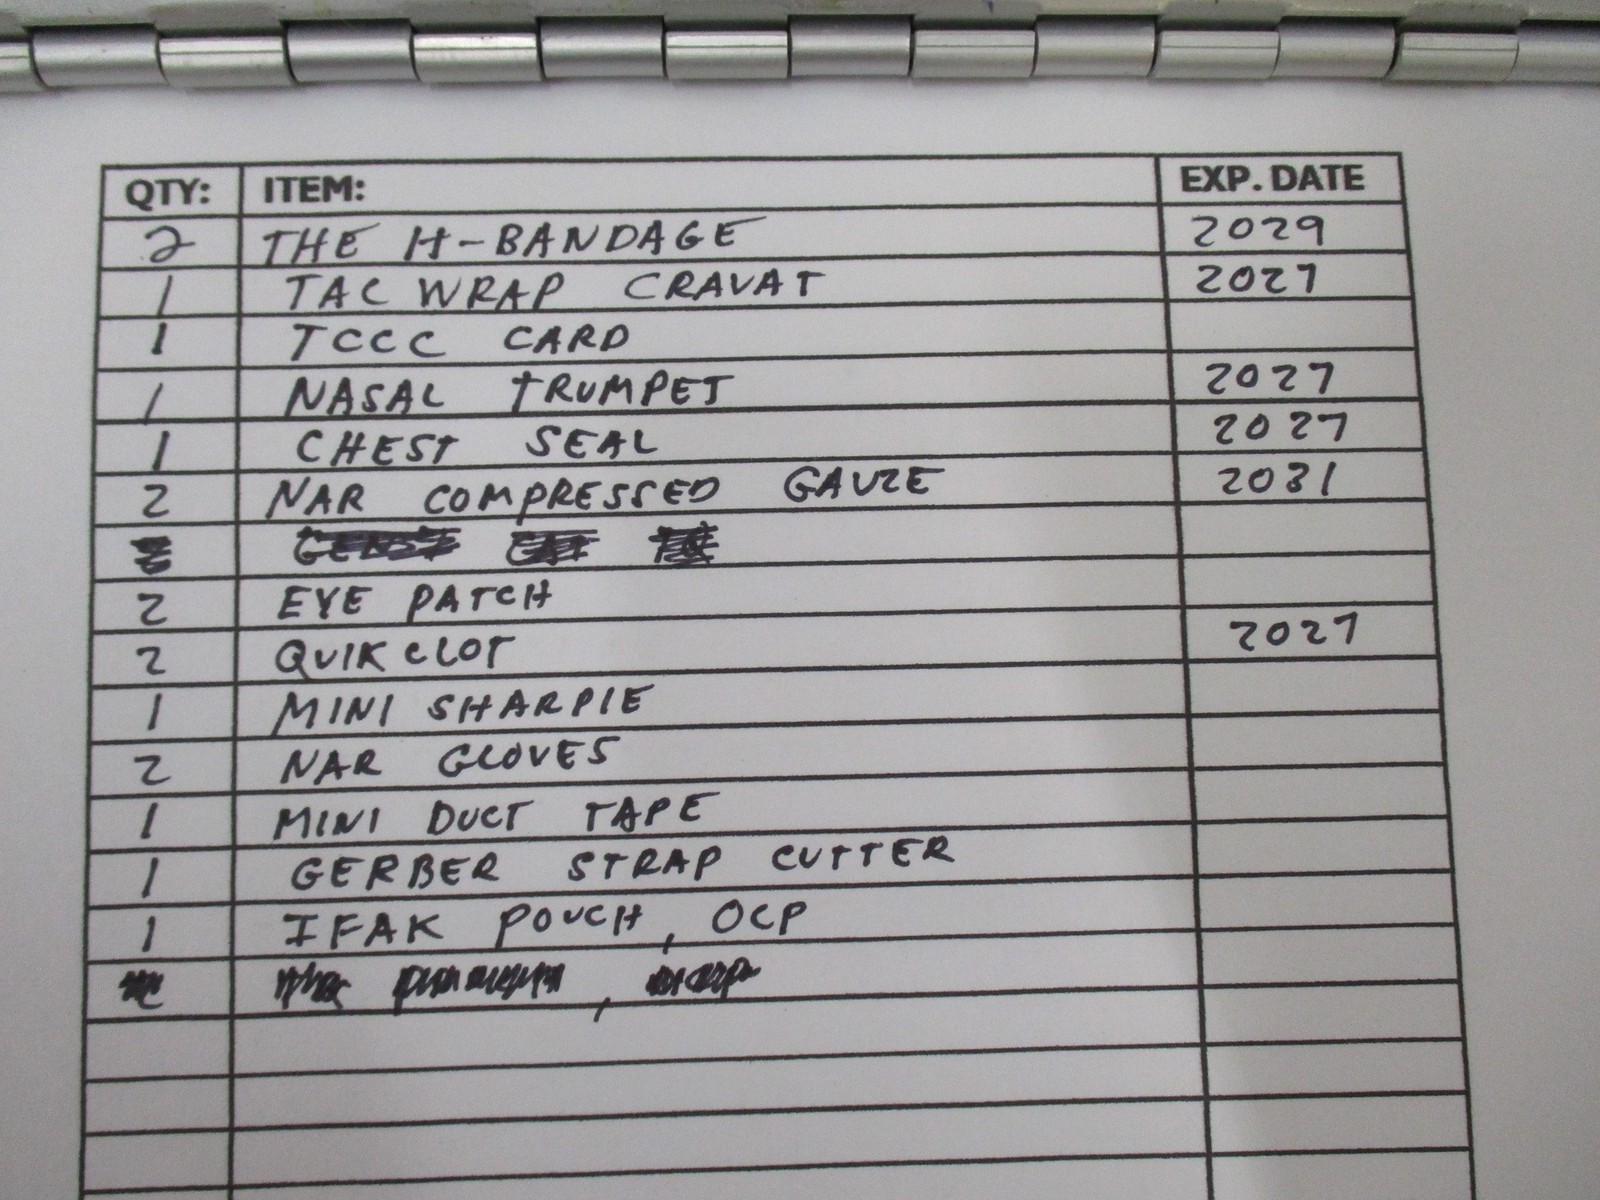 QTY: ITEM: EXP. DATE
2 THE H-BANDAGE 2029
1 TAC WRAP CRAVAT 2027
1 TCCC CARD
1 NASAL TRUMPET 2027
1 CHEST SEAL 2027
2 NAR COMPRESSED GAUZE 2031
2 EYE PATCH
2 QUIKCLOT 2027
1 MINI SHARPIE
2 NAR GLOVES
1 MINI DUCT TAPE
1 GERBER STRAP CUTTER
1 IFAK POUCH, OCP